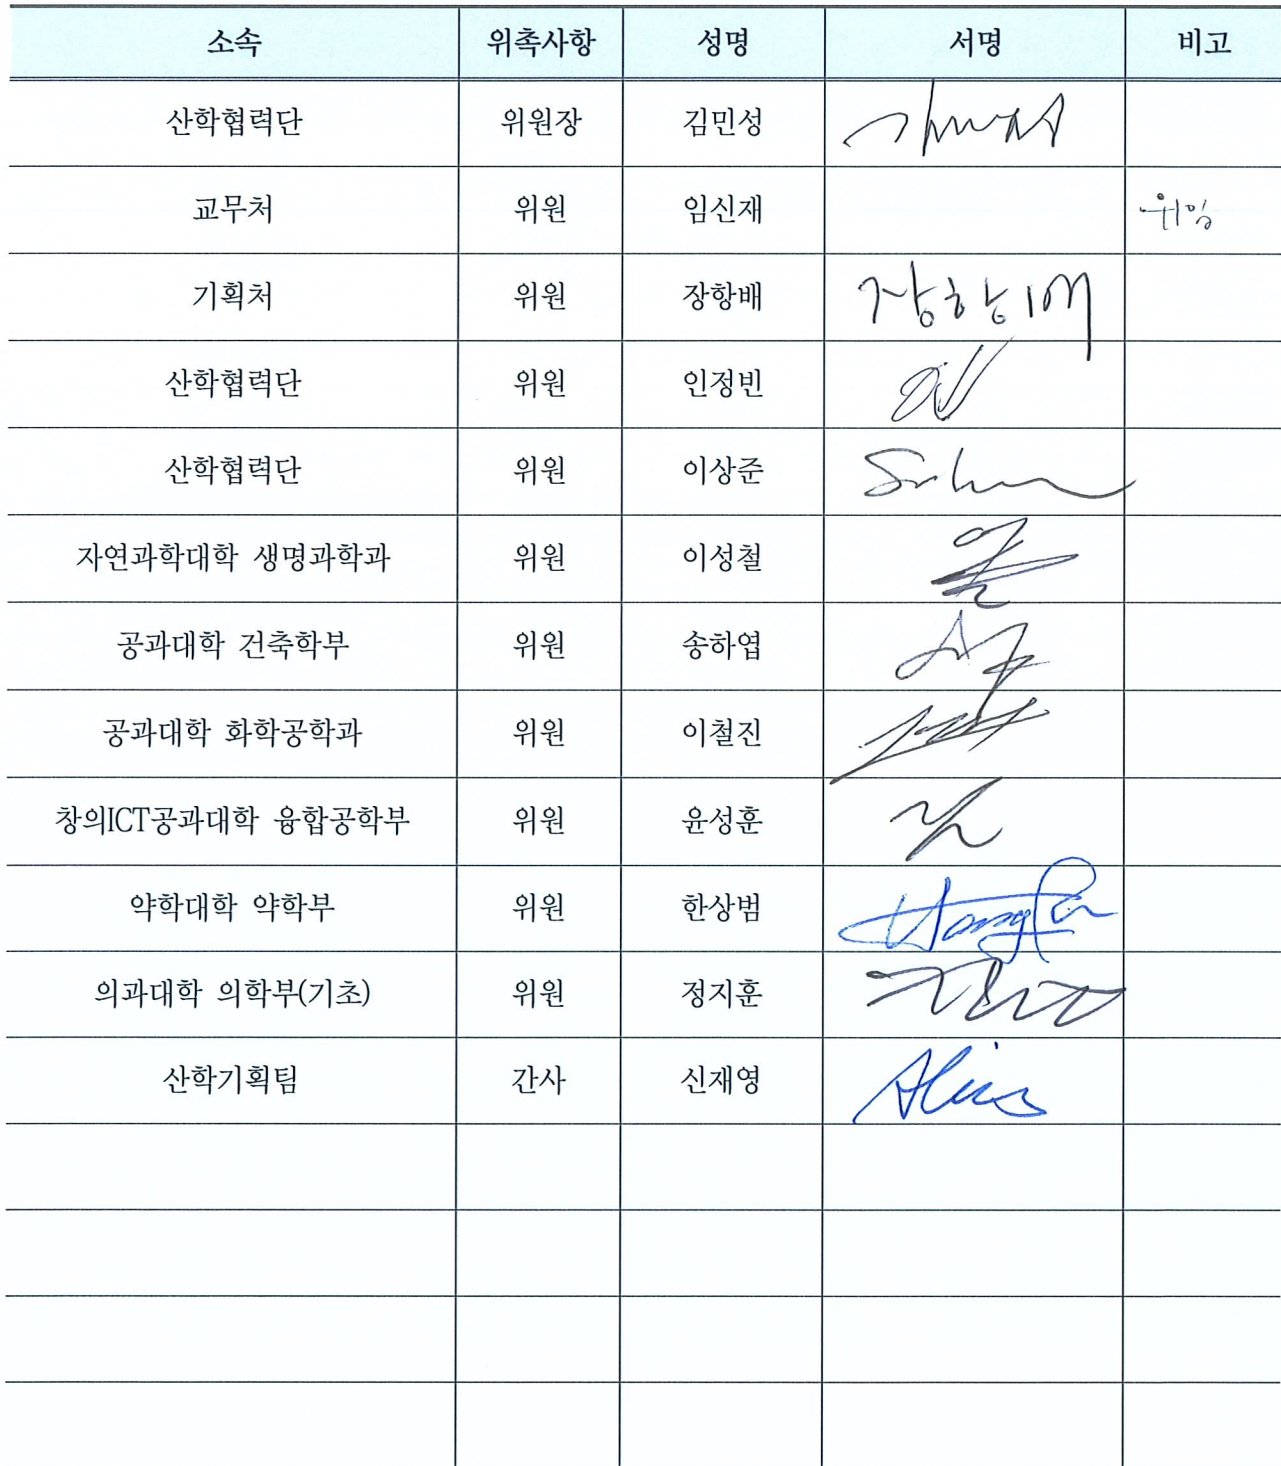 소속 위촉사항 성명 서명 비고
산학협력단 위원장 김민성
교무처 위원 임신재 위임
기획처 위원 장항배 장항배
산학협력단 위원 인정빈
산학협력단 위원 이상준
자연과학대학 생명과학과 위원 이성철
공과대학 건축학부 위원 송하엽
공과대학 화학공학과 위원 이철진
창의ICT공과대학 융합공학부 위원 윤성훈
약학대학 약학부 위원 한상범
의과대학 의학부(기초) 위원 정지훈
산학기획팀 간사 신재영